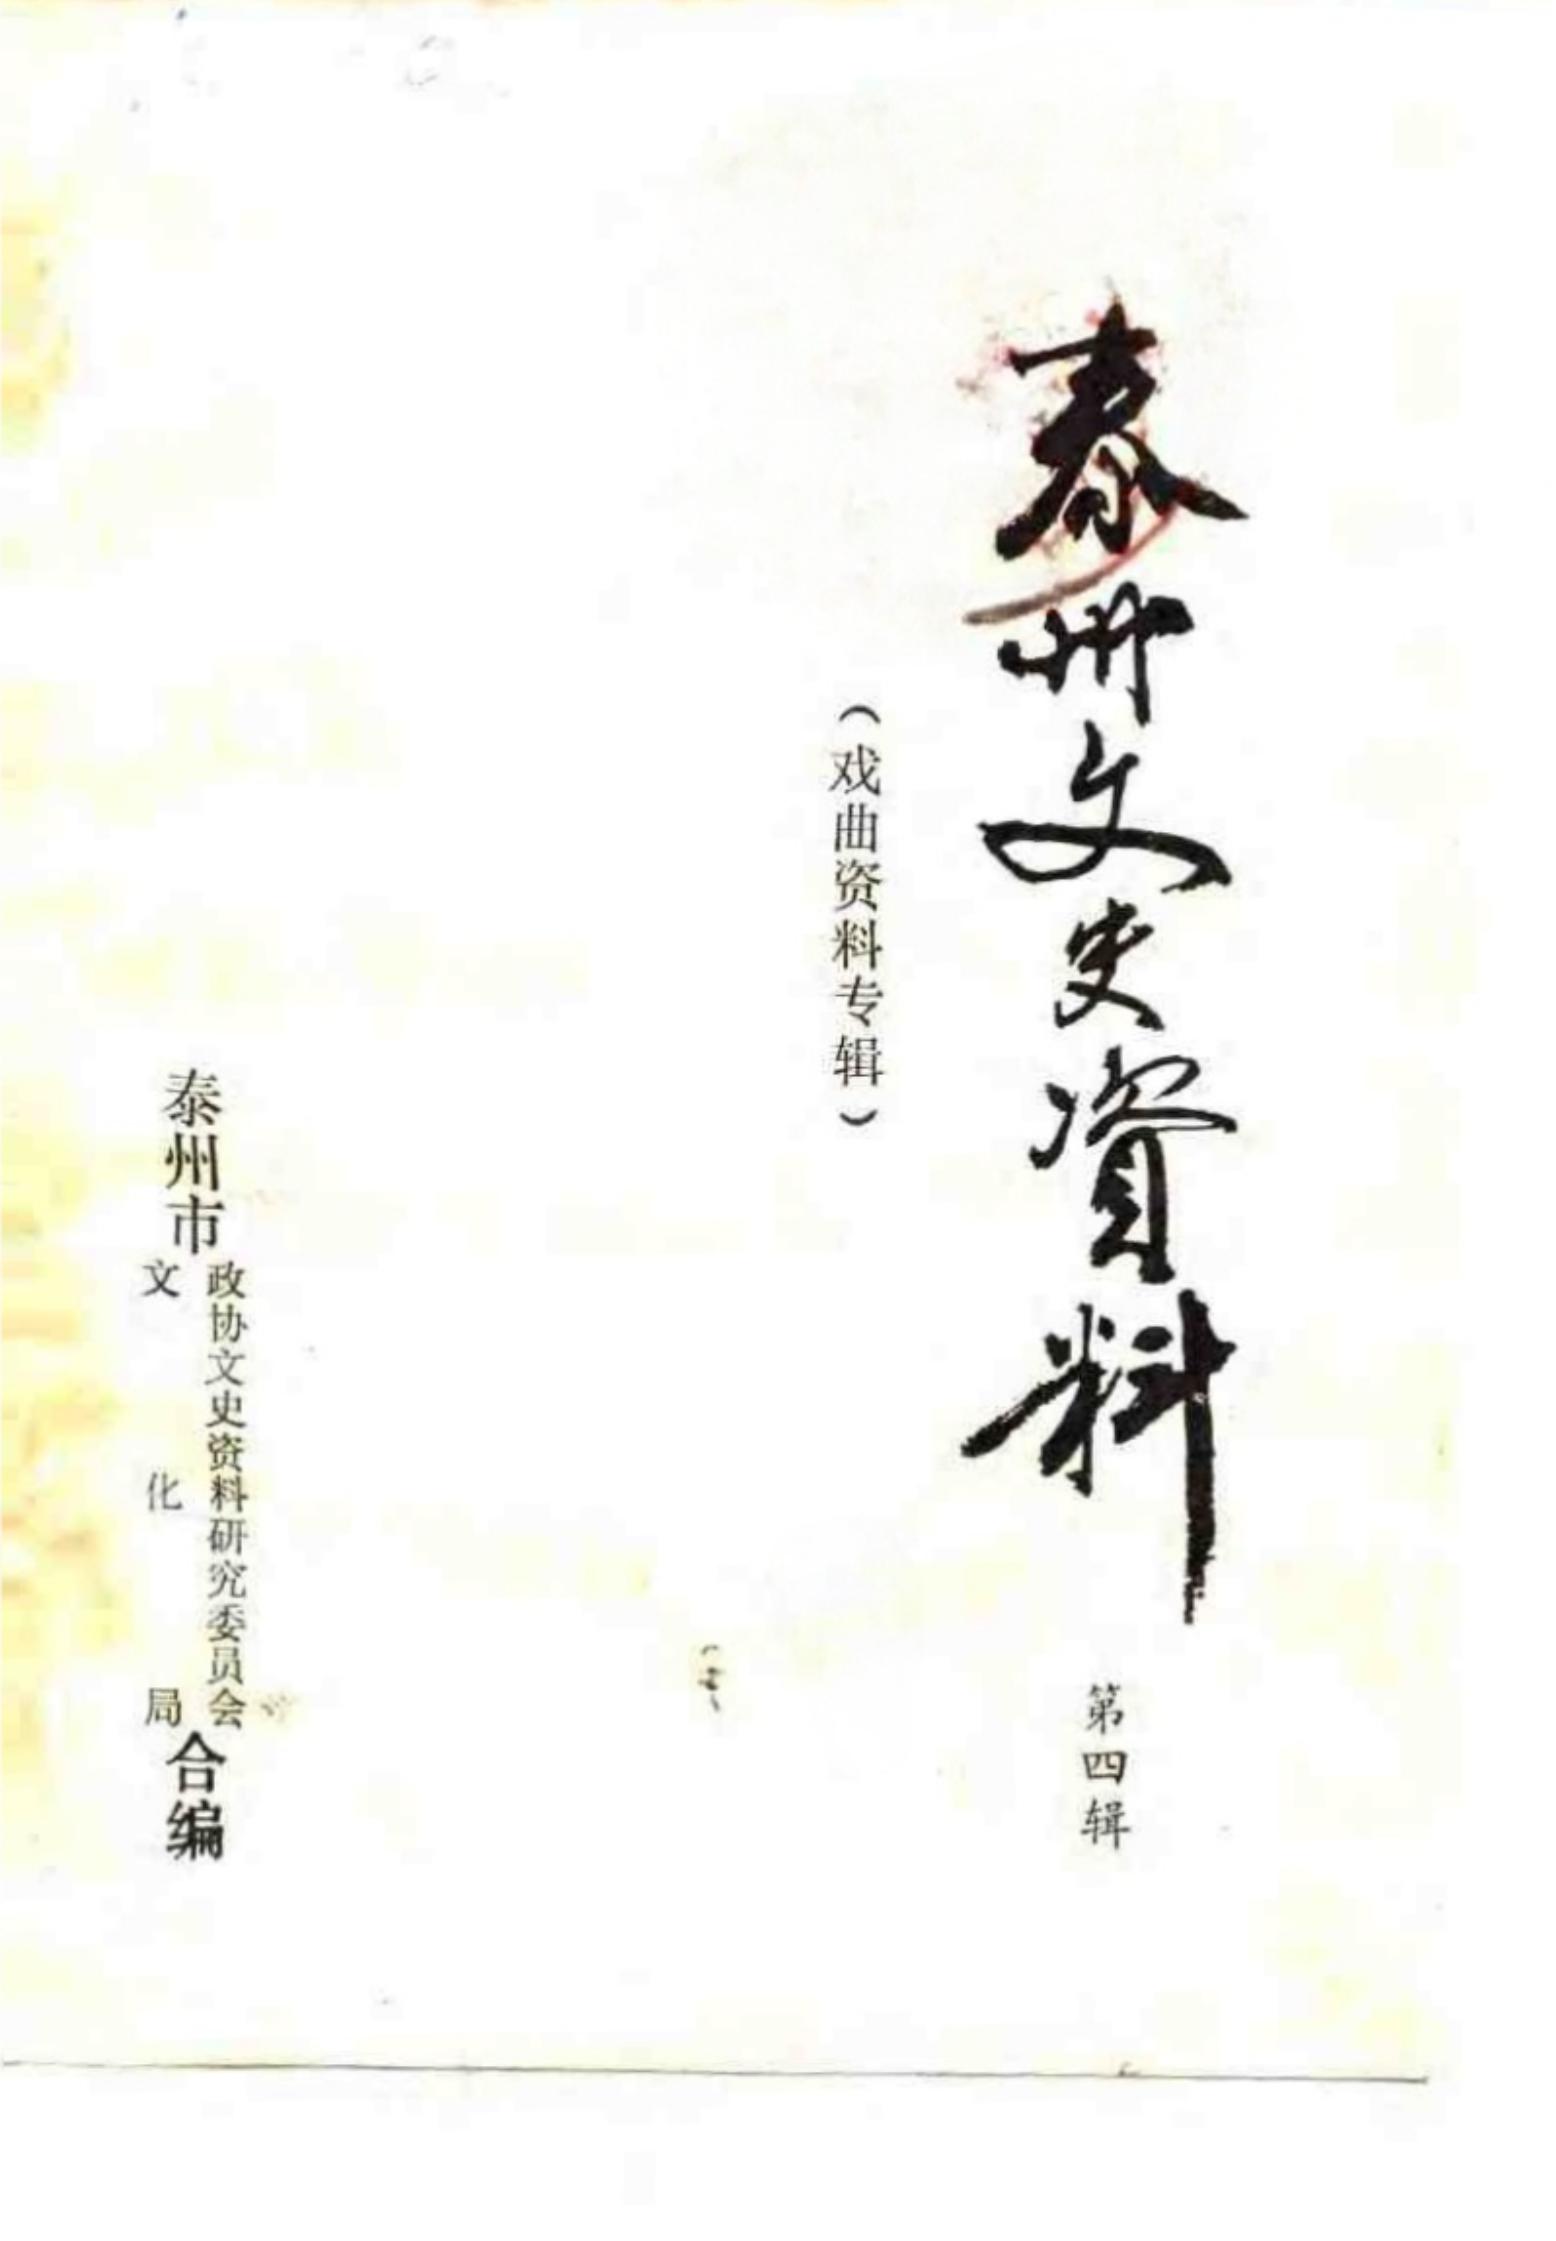 泰州文史資料
第四辑
（戏曲资料专辑）
泰州市
政协文史资料研究委员会
文化局
合编